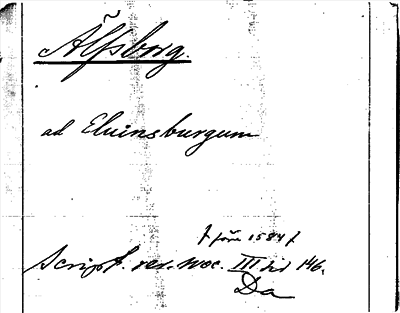 Älfsborg.
ad Eluinsburgum
[före 1584]
Script. rer. svec. III sid 146.
Da